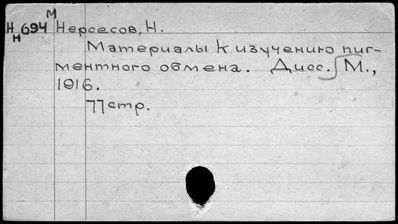 М
Н 694 Нерсесов, Н.
н
Материалы к изучению пиг-
ментного обмена. Дисс. М.,
1916.
77 стр.